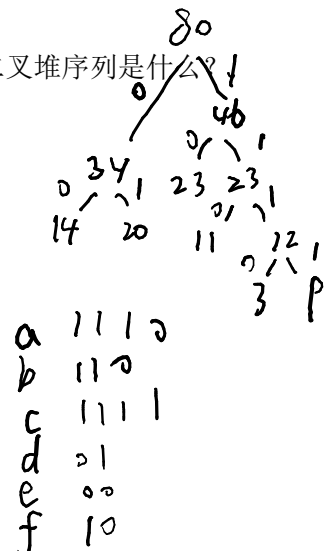 80
叉堆序列是什么?
0 1
46
0 1
34 23 23
0 1 0 1
14 20 11 12
0 1
3 9
a 1110
b 110
c 1111
d 01
e 00
f 10